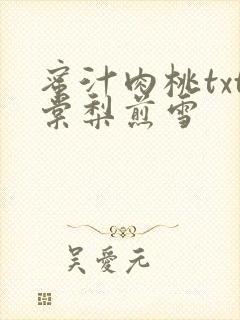 蜜汁肉桃txt
棠梨煎雪
吴愛元